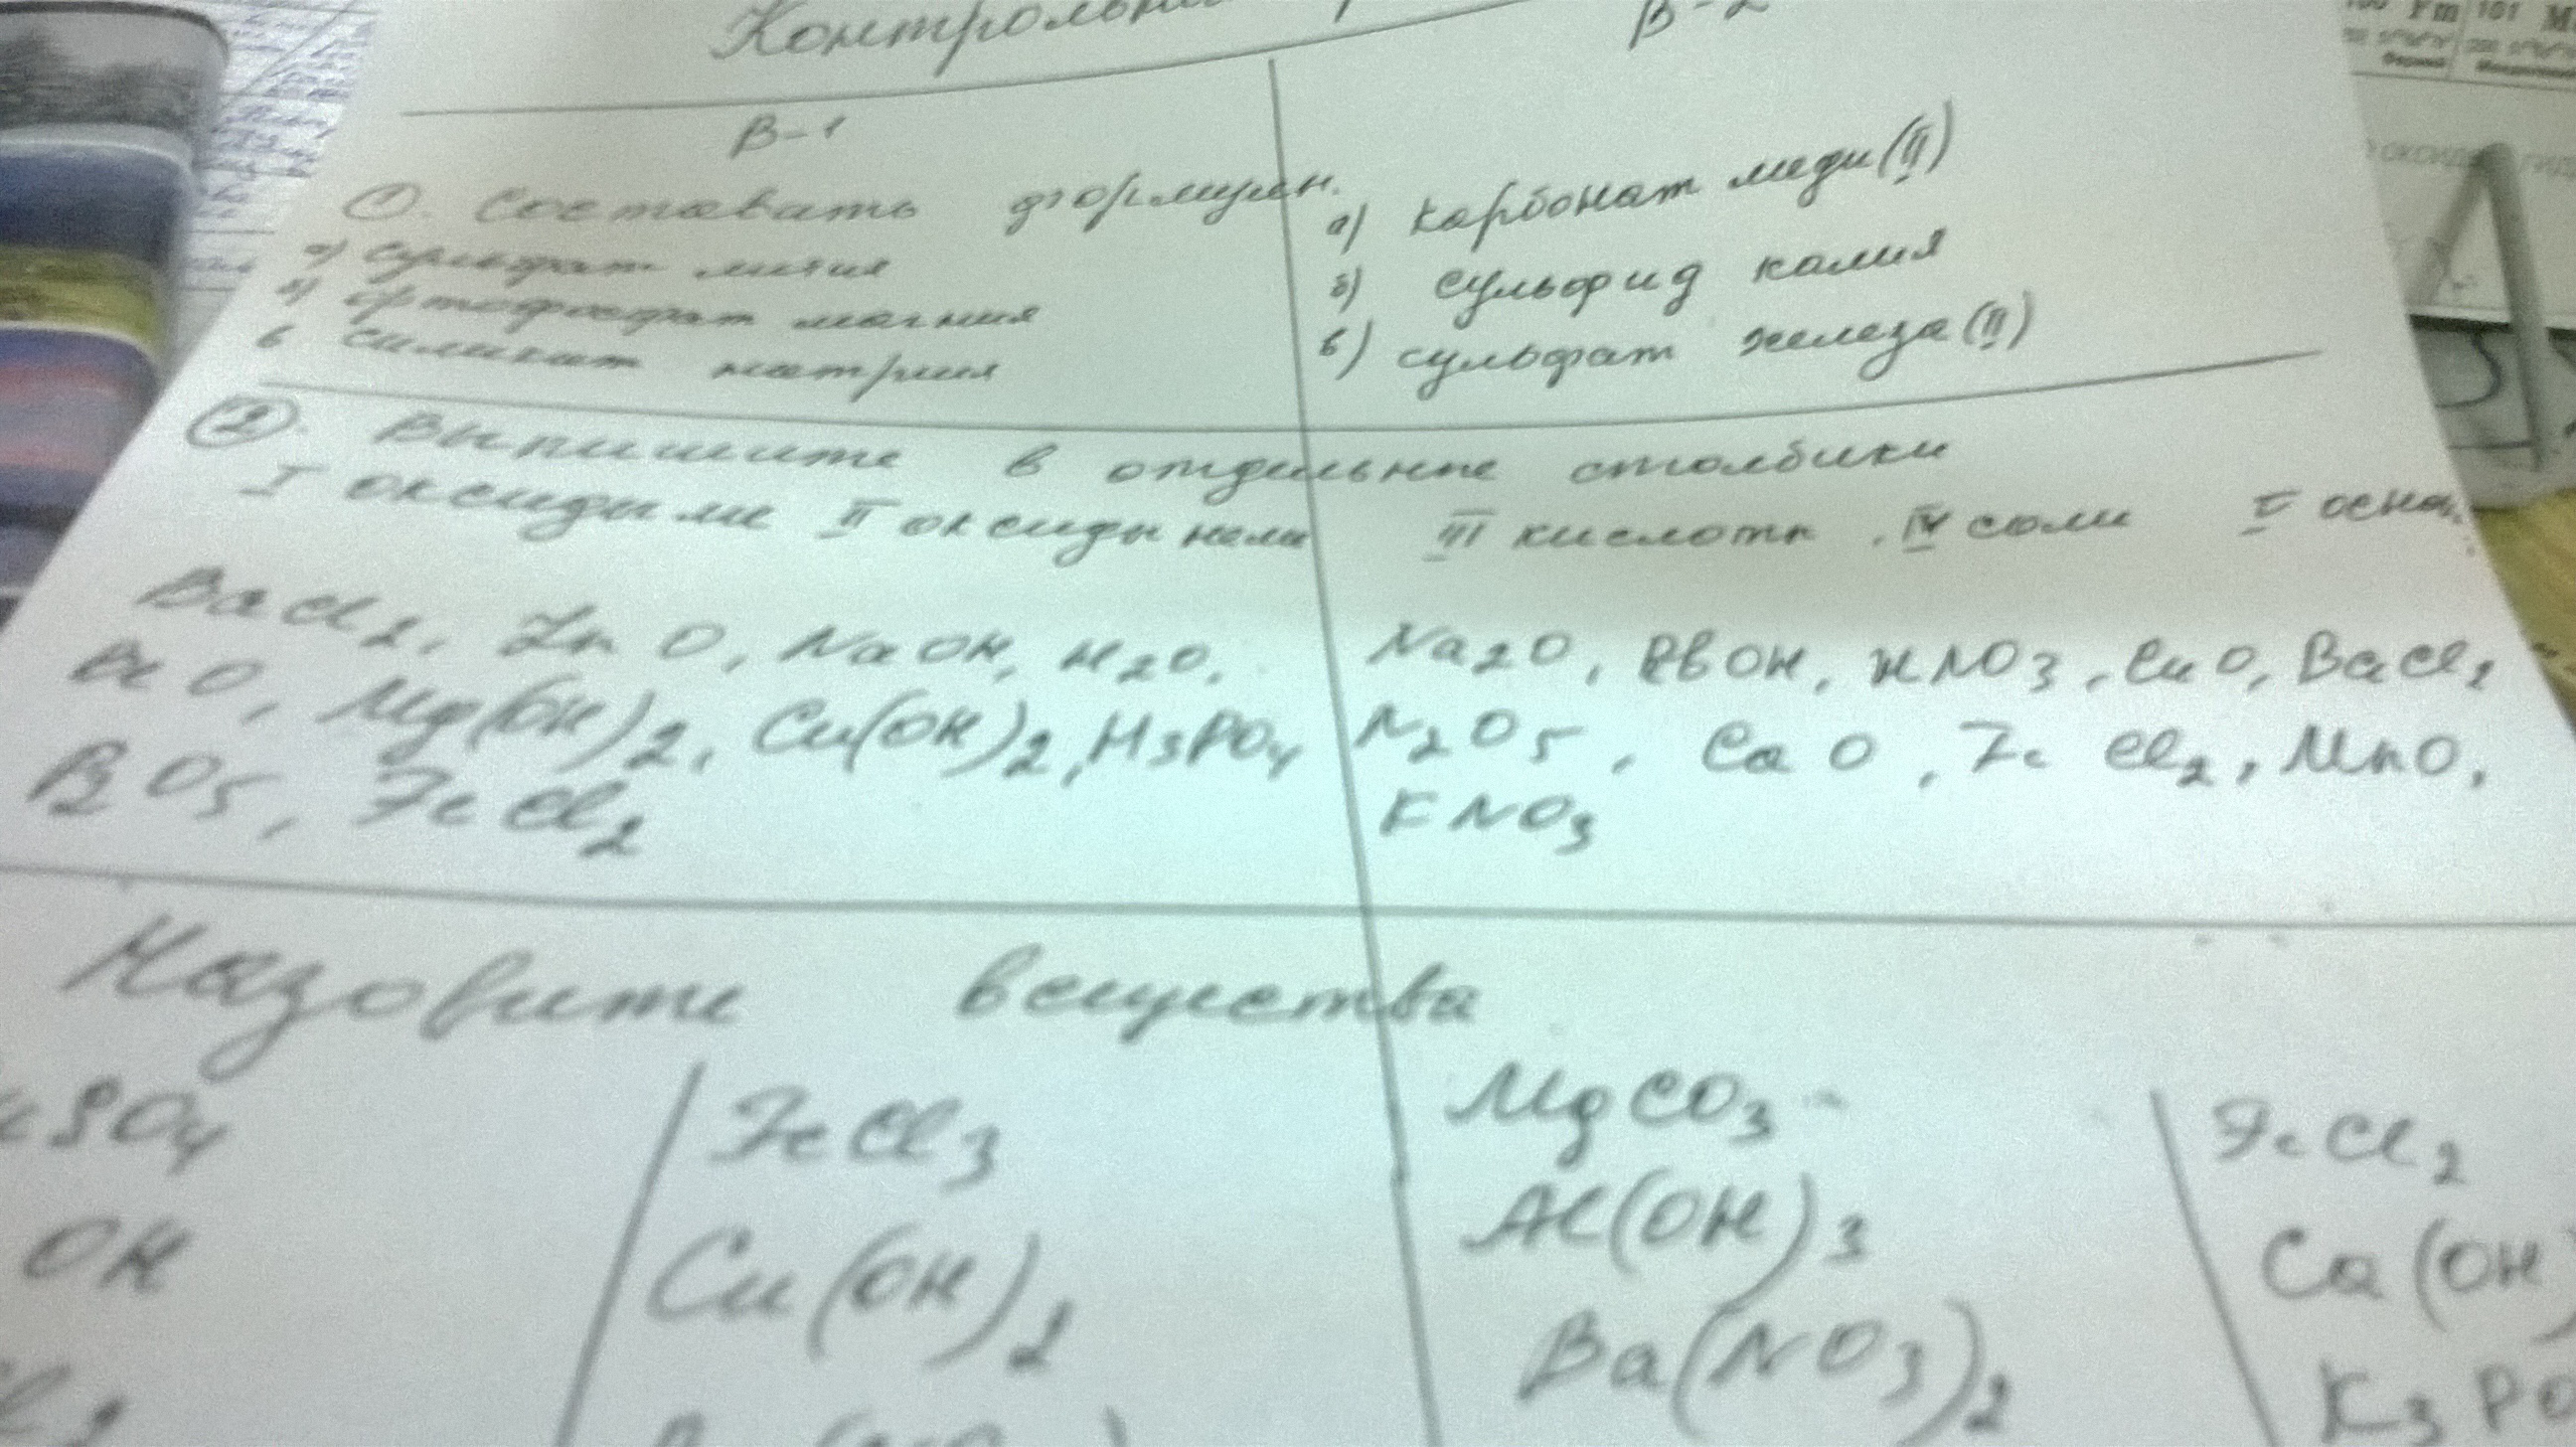 Контрольн
В-2
В-1
①. Составить формулы.
а) сульфат лития
б) ортофосфат магния
в силикат натрия
а) карбонат меди (II)
б) сульфид калия
в) сульфат железа (II)
②. Выпишите в отдельные столбики
I оксиды ме II оксиды неме III кислоты. IV соли V основ.
BaCl2, ZnO, NaOH, H2O,
BeO, Mg(OH)2, Cu(OH)2, H3PO4
P2O5, FeCl2
Na2O, RbOH, HNO3, CuO, BaCl2
N2O5, CaO, FeCl2, MnO,
KNO3
Назовите вещества
SO4
OH
FeCl3
Cu(OH)2
MgCO3
Al(OH)3
Ba(NO3)2
FeCl2
Ca(OH)
K3PO
Fm 101 M